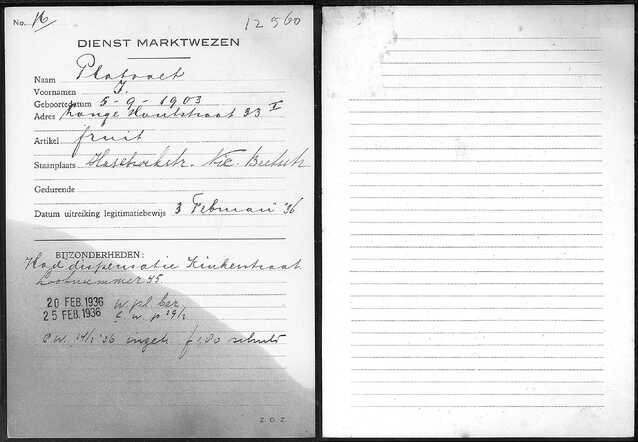 No. 16
12560
DIENST MARKTWEZEN
Naam Platvoet
Voornamen J.
Geboortedatum 5-9-1903
Adres Lange Houtstraat 33 I
Artikel fruit
Staanplaats Hasebroekstr. Nic. Beetsstr
Gedurende
Datum uitreiking legitimatiebewijs 3 Februari '36
BIJZONDERHEDEN:
Had dispensatie Kinkerstraat
lootnummer 45
20 FEB. 1936 w. pl. bez.
25 FEB. 1936 w. p 29/2
'36 f 1.80 schuld
Z.O.Z.